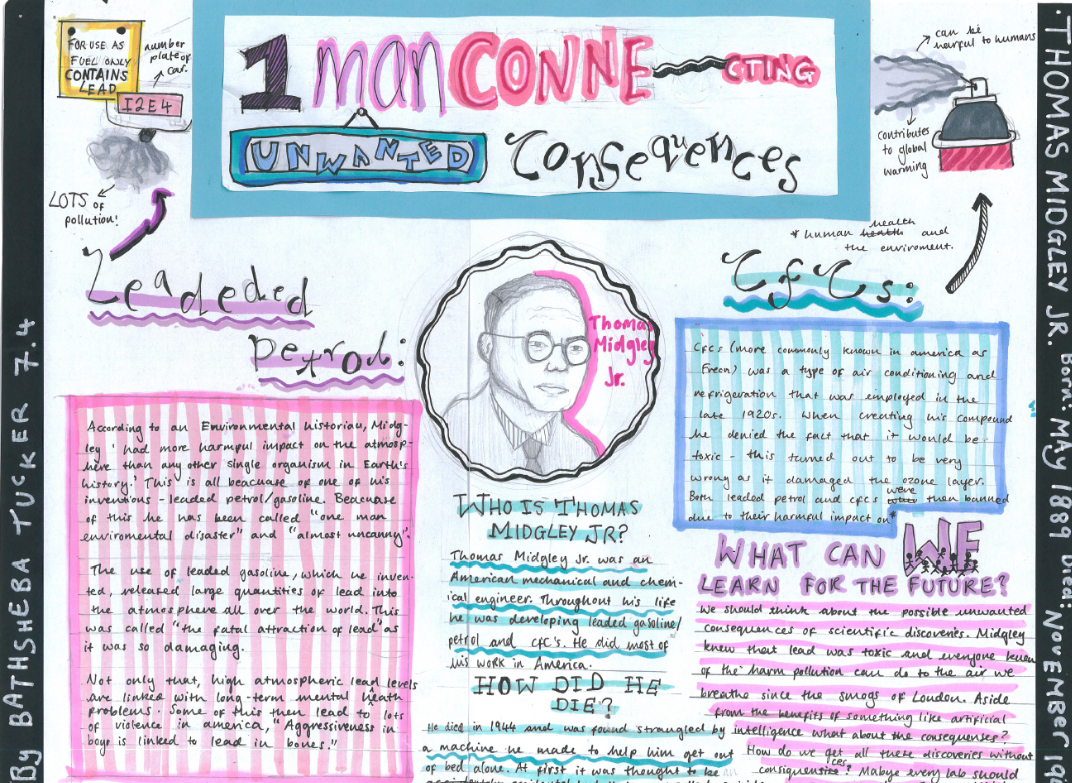 FOR USE AS
FUEL ONLY
CONTAINS
LEAD
number
plate of
car.
I2E4
LOTS of
pollution!
1 man CONNECTING
UNWANTED Consequences
can be
harful to humans
contributes
to global
warming
* human health health and
the enviroment.
Leadeded
petrol:
According to an Environmental historian, Midg-
ley 'had more harmful impact on the atmosp-
here than any other single organism in Earth's
history.' This is all beacuase of one of his
inventions - leaded petrol/gasoline. Beacuase
of this he has been called "one man
enviromental disaster" and "almost uncanny".
The use of leaded gasoline, which he inven-
ted, released large quantities of lead into
the atmosphere all over the world. This
was called "the fatal attraction of lead" as
it was so damaging.
Not only that, high atmospheric lead levels
are linked with long-term mental heath
problems. Some of this then lead to lots
of violence in america, "Aggressiveness in
boys is linked to lead in bones."
Thomas
Midgley
Jr.
WHO IS THOMAS
MIDGLEY JR?
Thomas Midgley Jr. was an
American mechanical and chem-
ical engineer. Throughout his life
he was developing leaded gasoline/
petrol and CFC's. He did most of
his work in America.
HOW DID HE
DIE?
He died in 1944 and was found strangled by
a machine he made to help him get out
of bed alone. At first it was thought to be
CfCs:
CFCs (more commonly known in america as
Freon) was a type of air conditioning and
refrigeration that was employed in the
late 1920s. When creating his compound
he denied the fact that it would be
toxic - this turned out to be very
wrong as it damaged the ozone layer.
Both leaded petrol and cfcs were then banned
due to their harmful impact on*
WHAT CAN WE
LEARN FOR THE FUTURE?
We should think about the possible unwanted
consequences of scientific discoveries. Midgley
knew that lead was toxic and everyone knew
of the harm pollution can do to the air we
breathe since the smogs of London. Aside
from the benefits of something like artificial
intelligence what about the consequences?
How do we get all these discoveries without
consiquences? Mabye every lab should
By BATHSHEBA TUCKER 7.4
THOMAS MIDGLEY JR. Born: MAY 1889 Died: NOVEMBER 19